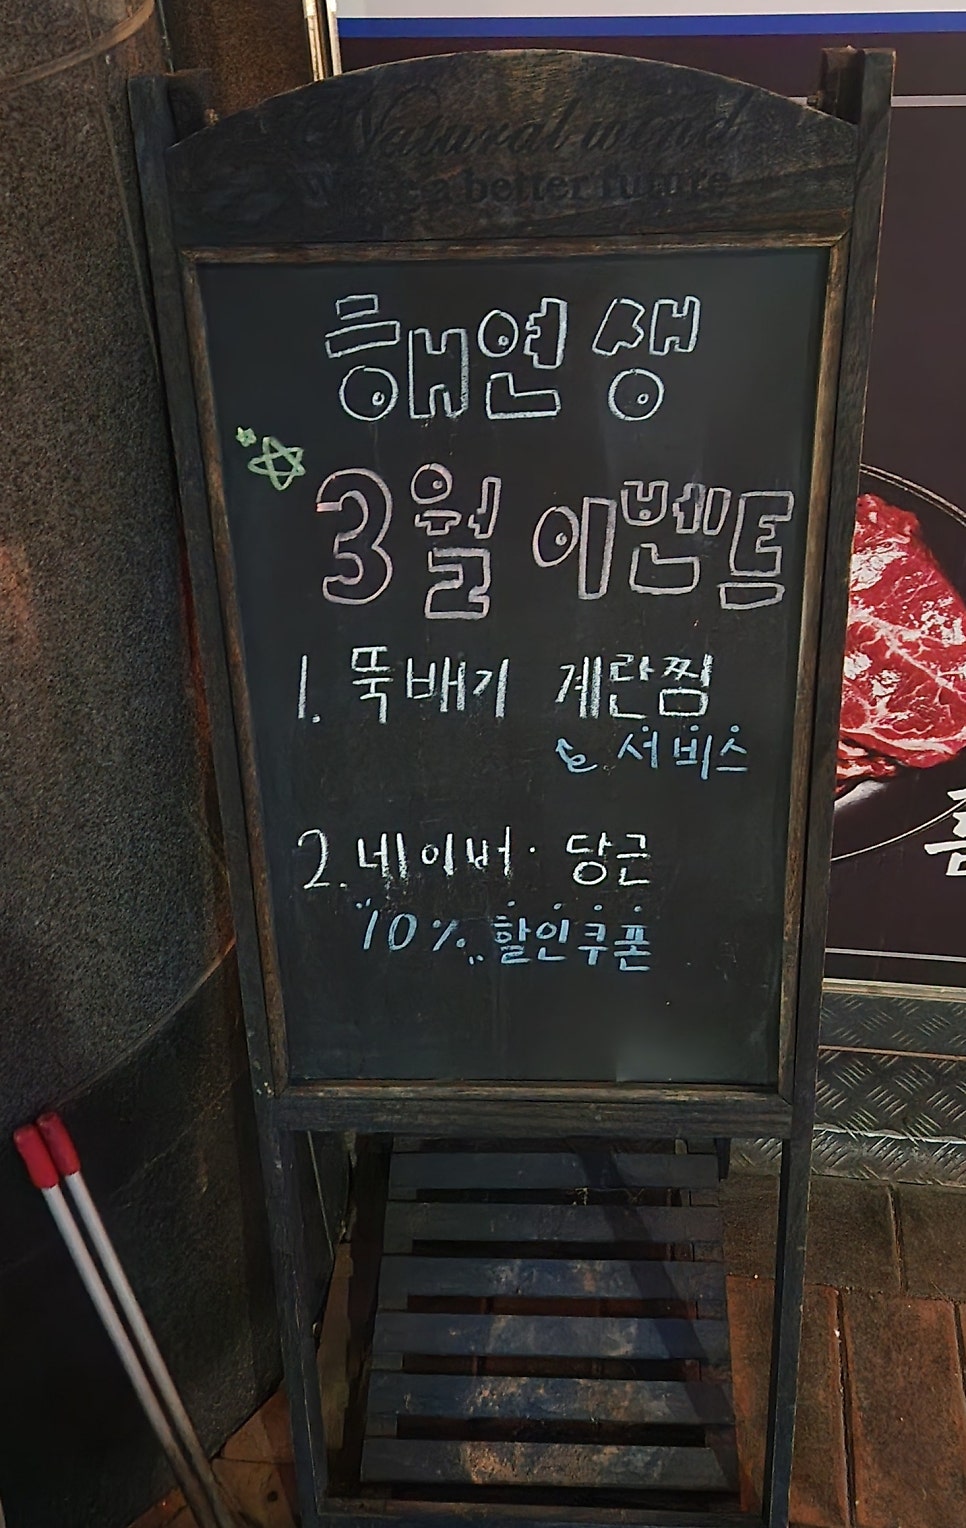 Natural wind
a better future
해연생
3월 이벤트
1. 뚝배기 계란찜
서비스
2. 네이버·당근
"10%" 할인쿠폰